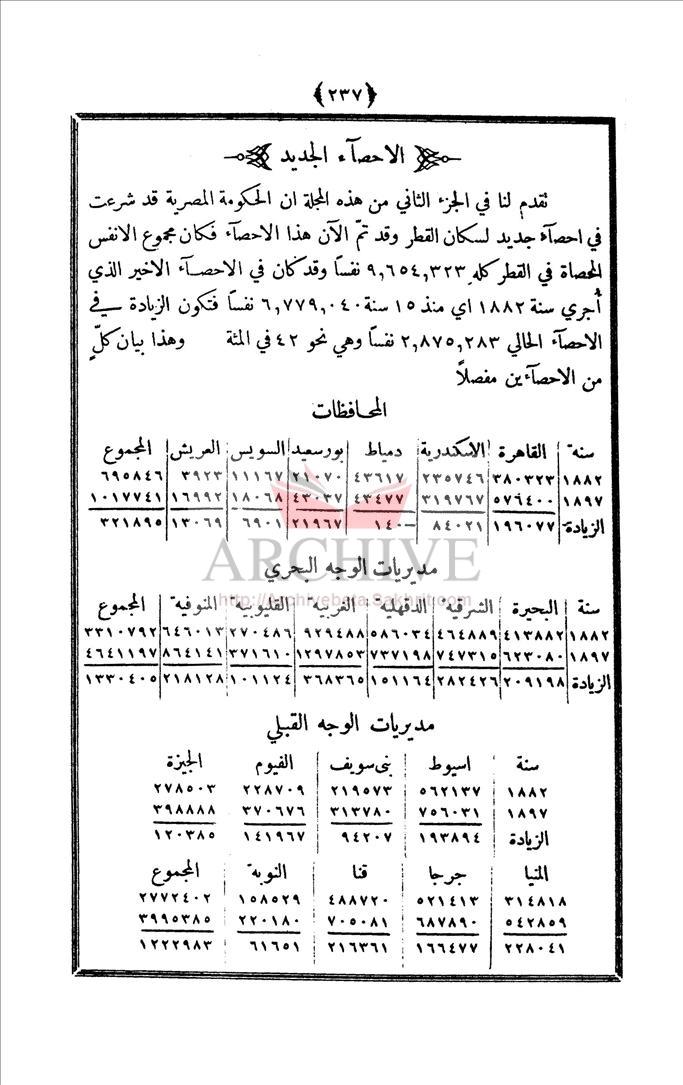 ﴿٢٣٧﴾
الاحصآء الجديد
نقدم لنا في الجزء الثاني من هذه المجلة ان الحكومة المصرية قد شرعت
في احصآء جديد لسكان القطر وقد تمّ الآن هذا الاحصآء فكان مجموع الانفس
المحصاة في القطر كلهِ ٩,٦٥٤,٣٢٣ نفسًا وقد كان في الاحصآء الاخير الذي
أُجري سنة ١٨٨٢ اي منذ ١٥ سنة ٦,٧٧٩,٠٤٠ نفسًا فتكون الزيادة في
الاحصآء الحالي ٢,٨٧٥,٢٨٣ نفسًا وهي نحو ٤٢ في المئة وهذا بيان كلٍّ
من الاحصآءين مفصلاً
المحافظات
سنة القاهرة الاسكندرية دمياط بورسعيد السويس العريش المجموع
١٨٨٢ ٣٨٠٣٢٣ ٢٣٥٧٤٦ ٤٣٦١٧ ٢١٠٧٠ ١١١٦٧ ٣٩٢٣ ٦٩٥٨٤٦
١٨٩٧ ٥٧٦٤٠٠ ٣١٩٧٦٧ ٤٣٤٧٧ ٤٣٠٣٧ ١٨٠٦٨ ١٦٩٩٢ ١٠١٧٧٤١
الزيادة ١٩٦٠٧٧ ٨٤٠٢١ ١٤٠- ٢١٩٦٧ ٦٩٠١ ١٣٠٦٩ ٣٢١٨٩٥
ARCHIVE
http://Archivebeta.Sakhrit.com
مديريات الوجه البحري
سنة البحيرة الشرقية الدقهلية الغربية القليوبية المنوفية المجموع
١٨٨٢ ٤١٣٨٨٢ ٤٦٤٨٨٩ ٥٨٦٠٣٤ ٩٢٩٤٨٨ ٢٧٠٤٨٦ ٦٤٦٠١٣ ٣٣١٠٧٩٢
١٨٩٧ ٦٢٣٠٨٠ ٧٤٧٣١٥ ٧٣٧١٩٨ ١٢٩٧٨٥٣ ٣٧١٦١٠ ٨٦٤١٤١ ٤٦٤١١٩٧
الزيادة ٢٠٩١٩٨ ٢٨٢٤٢٦ ١٥١١٦٤ ٣٦٨٣٦٥ ١٠١١٢٤ ٢١٨١٢٨ ١٣٣٠٤٠٥
مديريات الوجه القبلي
سنة اسيوط بنى سويف الفيوم الجيزة
١٨٨٢ ٥٦٢١٣٧ ٢١٩٥٧٣ ٢٢٨٧٠٩ ٢٧٨٥٠٣
١٨٩٧ ٧٥٦٠٣١ ٣١٣٧٨٠ ٣٧٠٦٧٦ ٣٩٨٨٨٨
الزيادة ١٩٣٨٩٤ ٩٤٢٠٧ ١٤١٩٦٧ ١٢٠٣٨٥
المنيا جرجا قنا النوبة المجموع
٣١٤٨١٨ ٥٢١٤١٣ ٤٨٨٧٢٠ ١٥٨٥٢٩ ٢٧٧٢٤٠٢
٥٤٢٨٥٩ ٦٨٧٨٩٠ ٧٠٥٠٨١ ٢٢٠١٨٠ ٣٩٩٥٣٨٥
٢٢٨٠٤١ ١٦٦٤٧٧ ٢١٦٣٦١ ٦١٦٥١ ١٢٢٢٩٨٣